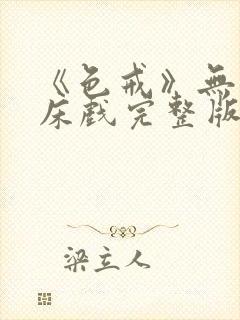 《色戒》無
床戲完整版
梁立人